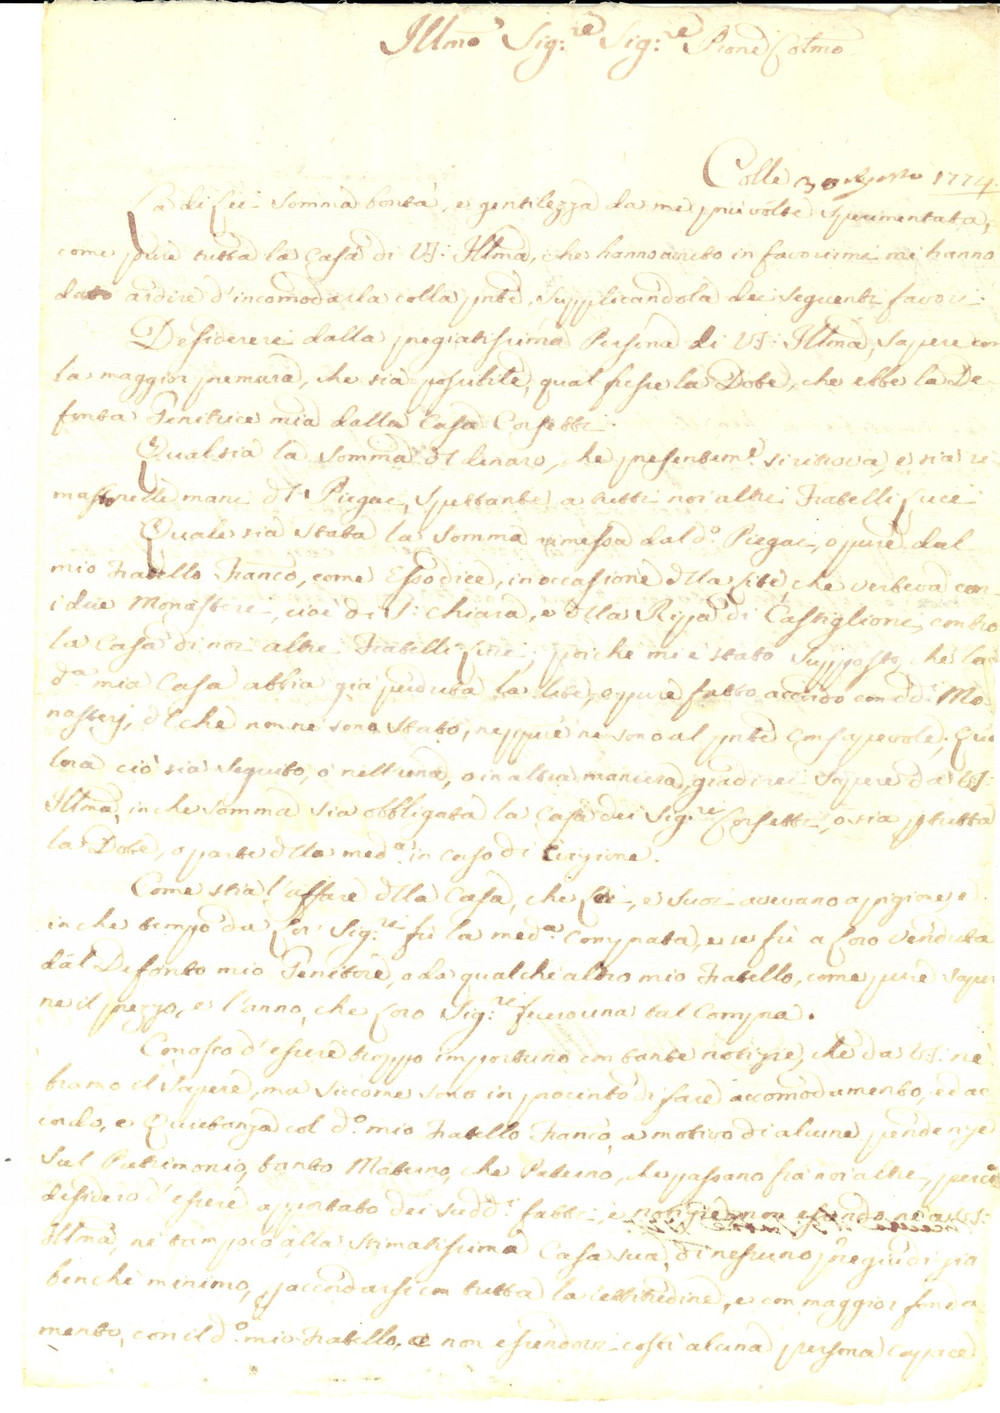 Illmo Sig:re Sig:re Prone Colmo
Colle 30 Agosto 1774
La di Lei somma bontà, e gentilezza da me più volte sperimentata,
come pure tutta la Casa di VS: Illma, che hanno avuto in favorirmi mi hanno
dato ardire d'incomodarla colla pnte, supplicandola dei seguenti favori.
Desidererei dalla pregiatissima Persona di VS: Illma, sapere con
la maggior premura, che sia possibile, qual fosse la Dote, che ebbe la De-
fonta Genitrice mia dalla Casa Corsetti.
Qual sia la somma dl denaro, che presentemte si ritrova, e sia ri
masto nelle mani dl Piegai, spettante a tutti noi altri Fratelli Luci
Quale sia stata la somma rimessa dal do Piegai, o pure dal
mio Fratello Franco, come Esso dice, in occasione dlla Lite, che verteva con
i due Monasteri, cioè di S: Chiara, e dlla Ripa di Castiglione, contro
la Casa di noi altri Fratelli Luci, poiche mi è stato supposto, che la
da mia Casa abbia già perduta la lite, oppure fatto accordo con dd:i Mo-
nasterj, dl che non ne sono stato, neppure ne sono al pnte consapevole. Qua
lora ciò sia seguito, o nell'una, o in altra maniera, gradirei sapere da VS:
Illma, in che somma sia obbligata la Casa dei Sig:ri Corsetti, o sia p tutta
la Dote, o parte dlla meda in caso di
Come stia l'affare dlla Casa, che Lei, e suoi avevano a pigione, e
in che tempo da Lor Sig:ri fù la meda comprata, e se fù a Loro venduta
dal Defonto mio Genitore, o da qualch'altro mio Fratello, come pure saper
ne il prezzo, e l'anno, che Loro Sig:ri fecero una tal Compra.
Conosco d'essere troppo importuno con tante notizie, che da VS: ne
bramo il sapere, ma siccome sono in procinto di fare accomodamento, ed ac
cordo, e Quietanza col do mio Fratello Franco, a motivo di alcune pendenze
sul Patrimonio, tanto Materno, che Paterno, che passano fra noi altri, perciò
desidero d'essere a portato dei sudd:i fatti, e notizie non essendo ne a VS:
Illma, ne tampoco alla stimatissima Casa sua, di nessuno pregiudizio
benchè minimo, p accordarsi con tutta la rettitudine, e con maggior fonda
mento, con il do mio Fratello, e non essendovi costì alcuna persona capace